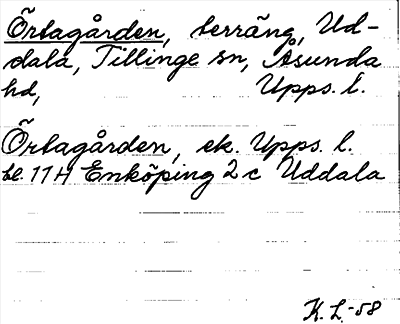 Örtagården, terräng, Ud-
dala, Tillinge sn, Åsunda
hd, Upps. l.
Örtagården, ek. Upps. l.
bl. 11H Enköping 2c Uddala
K. L. -58